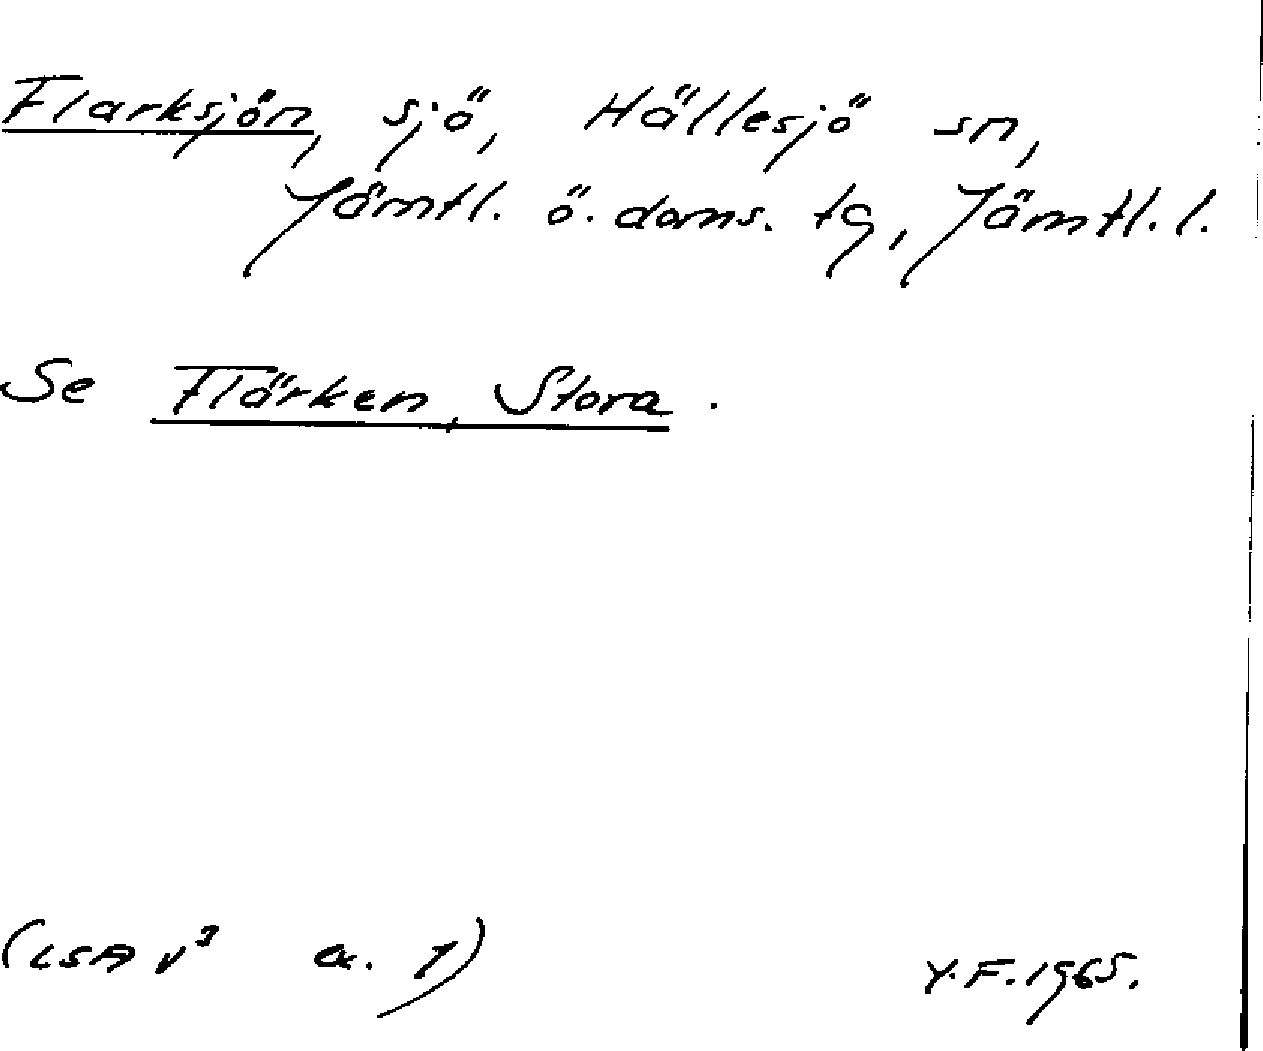 Flarksjön, sjö, Hällesjö sn,
Jämtl. ö. doms. tg, Jämtl. l.
Se Flärken, Stora.
(LSA V³ a. 1)
Y.F. 1965.